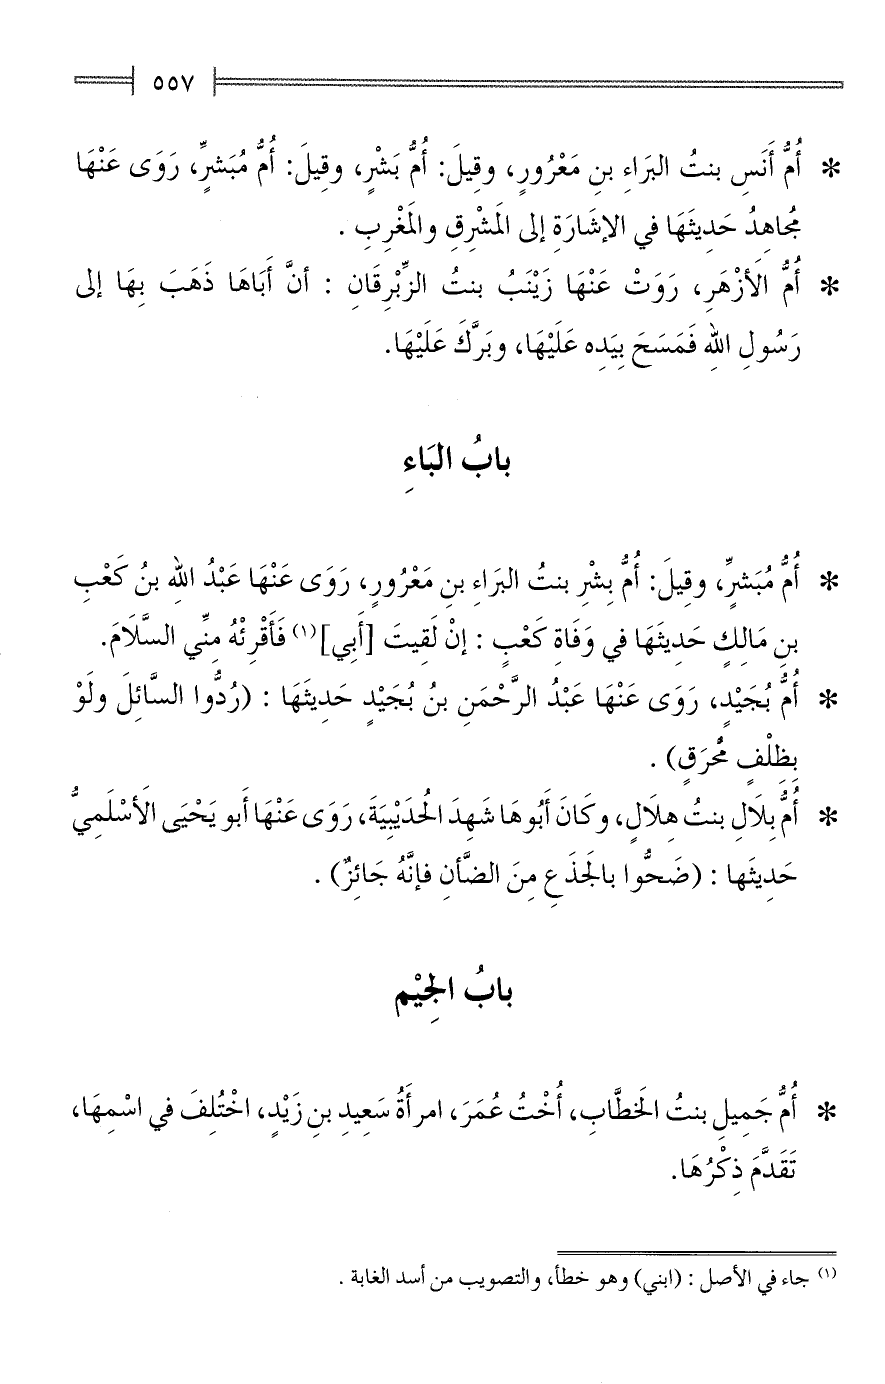 ٥٥٧
* أُمُّ أَنَسٍ بنتُ البَرَاءِ بنِ مَعْرُورٍ، وقيلَ: أُمُّ بَشْرٍ، وقيلَ: أُمُّ مُبَشرٍّ، رَوَى عَنْهَا
مُجاهِدُ حَدِيثَهَا في الإشَارَةِ إلى المَشْرِقِ والمَغْرِبِ .
* أُمُّ الأَزْهَرِ، رَوَتْ عَنْهَا زَيْنَبُ بنتُ الزِّبْرِقَانِ : أنَّ أَبَاهَا ذَهَبَ بِهَا إلى
رَسُولِ اللهِ فَمَسَحَ بِيَدِه عَلَيْهَا، وبَرَّكَ عَلَيْهَا.
بابُ البَاءِ
* أُمُّ مُبَشرٍّ، وقِيلَ: أُمُّ بِشْرٍ بنتُ البَرَاءِ بنِ مَعْرُورٍ، رَوَى عَنْهَا عَبْدُ اللهِ بنُ كَعْبِ
بنِ مَالِكٍ حَدِيثَهَا في وَفَاةِ كَعْبٍ : إنْ لَقِيتَ [أَبي](١) فَأَقْرِئْهُ مِنِّي السَّلَامَ.
* أُمُّ بُجَيْدٍ، رَوَى عَنْهَا عَبْدُ الرَّحْمَنِ بنُ بُجَيْدٍ حَدِيثَهَا : (رُدُّوا السَّائِلَ ولَوْ
بِظِلْفٍ مُحْرَقٍ) .
* أُمُّ بِلَالٍ بنتُ هِلَالٍ، وكَانَ أَبُوهَا شَهِدَ الحُدَيْبِيَةَ، رَوَى عَنْهَا أَبو يَحْيَى الأَسْلَمِيُّ
حَدِيثَها : (ضَحُّوا بالجَذَعِ مِنَ الضَّأنِ فإنَّهُ جَائِزٌ) .
بابُ الجِيْمِ
* أُمُّ جَمِيلٍ بنتُ الخَطَّابِ، أُخْتُ عُمَرَ، امرأَةُ سَعِيدِ بنِ زَيْدٍ، اخْتُلِفَ في اسْمِهَا،
تَقَدَّمَ ذِكْرُهَا.
(١) جاء في الأصل : (ابني) وهو خطأ، والتصويب من أسد الغابة .